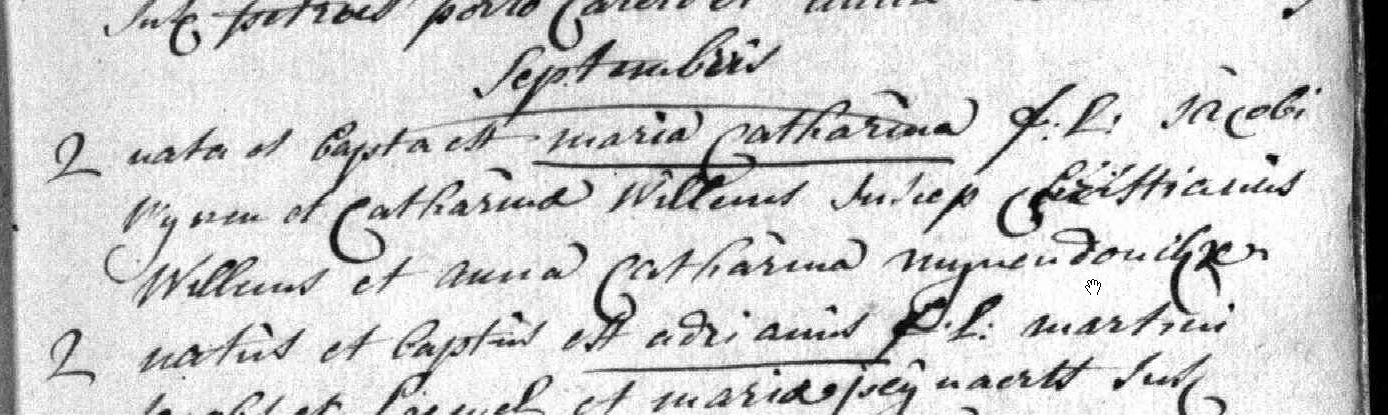 Susc petrus porto Carero et anna
Septembris
2 nata et bapta est maria Catharina f. L. Jacobi
Wynen et Catharina Willems Suscep Christianus
Willems et anna Catharina mynendonckx
2 natus et baptus est adrianus f. L. martini
et maria peynaerts Susc